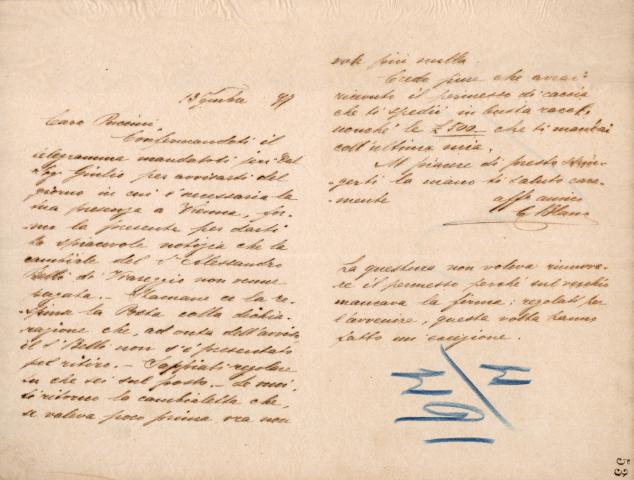 13 9mbre 97
Caro Puccini,
Confermandoti il
telegramma mandatoti ieri dal
Sigr Giulio per avvisarti del
giorno in cui è necessaria la
tua presenza a Vienna,
la presente per darti
la spiacevole notizia che la
cambiale del Sr Alessandro
Belli di Viareggio non venne
pagata. - Stamane ce la
la Posta colla dichia-
razione che, ad onta dell'avviso
il Sr Belli non s'è presentato
pel ritiro. - Sappiati regolare
in che sei sul posto. -
ti ritorno la cambialetta che,
se valeva poco prima, ora non
vale più nulla.
Credo pure che avrai
ricevuto il permesso di caccia
che ti spedii in busta racc.
nonchè le £500. che ti mandai
coll'ultima mia.
Al piacere di presto strin-
gerti la mano ti saluto cara-
mente
affo amico
C Blanc
La questura non voleva rinnova-
re il permesso perchè sul vecchio
mancava la firma: regolati per
l'avvenire, questa volta hanno
fatto un'eccezione.
53